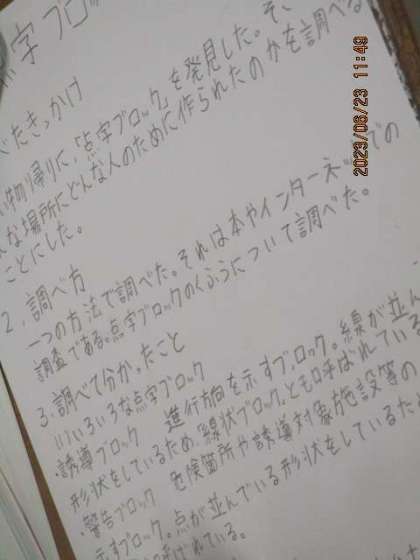 字ブロッ
べたきっかけ
い物帰りに、「点字ブロック」を発見した。そ、
んな場所にどんな人のために作られたのかを調べる
ことにした。
2、調べ方
一つの方法で調べた。それは本やインターネットでの
調査である。点字ブロックのくふうについて調べた。
3、調べて分かったこと
(1)いろいろな点字ブロック
・誘導ブロック 進行方向を示すブロック。線が並ん
形状をしているため「線状ブロック」とも呼ばれている
・警告ブロック 危険箇所や誘導対象施設等の
示すブロック。点が並んでいる形状をしているため
ばれている。
2023/06/23 11:49